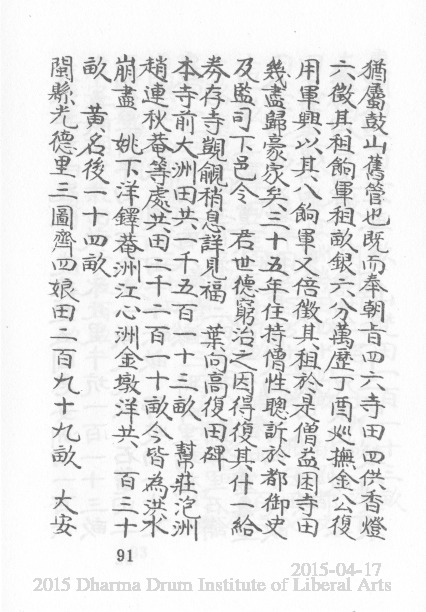 猶屬鼓山舊管也既而奉朝旨四六寺田四供香燈
六徵其租餉軍租畝銀六分萬歷丁酉巡撫金公復
用軍興以其八餉軍又倍徵其租於是僧益困寺田
幾盡歸豪家矣三十五年住持僧性聰訴於都御史
及監司下邑令　君世德窮治之因得復其什一給
券存寺覬覦稍息詳見福　葉向高復田碑
本寺前大洲田共一千五百一十三畝　幫莊沲洲
趙連秋菴等處共田二千二百一十畝今皆為洪水
崩盡　姚下洋鐸菴洲江心洲金墩洋共一百三十
畝　黄名後一十四畝
閩縣光德里三圖齊四娘田二百九十九畝　大安
91
2015-04-17
2015 Dharma Drum Institute of Liberal Arts